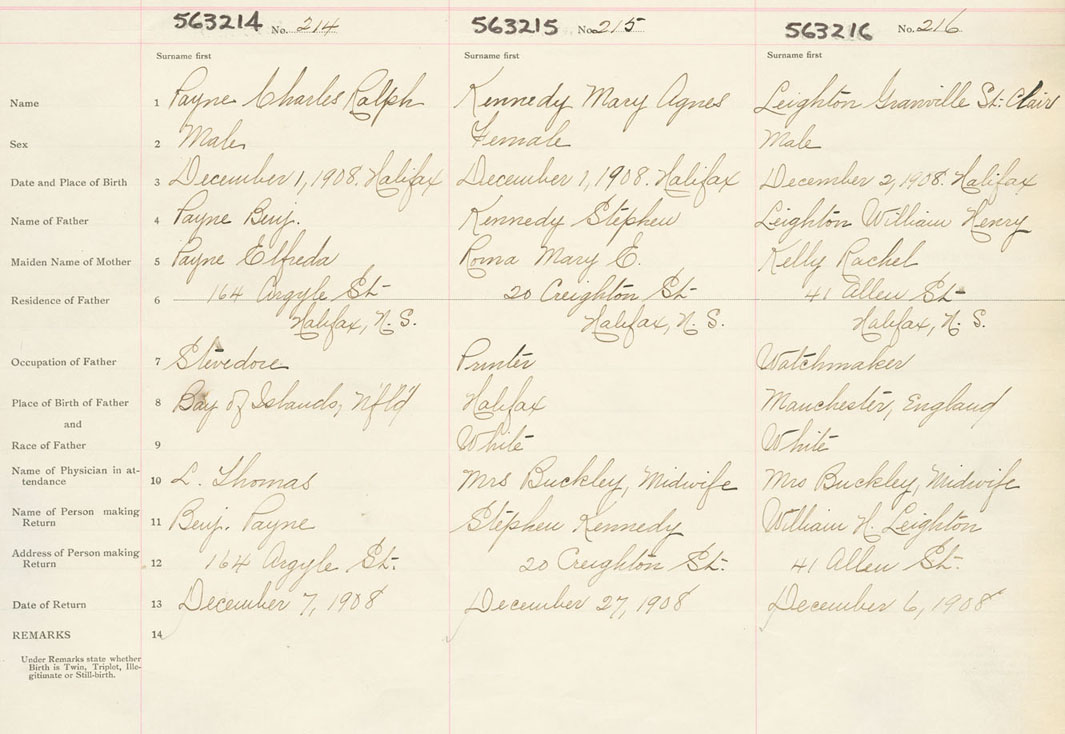 563214 No. 214 563215 No. 215 563216 No. 216
Surname first Surname first Surname first
Name 1 Payne Charles Ralph Kennedy Mary Agnes Leighton Granville St. Clair
Sex 2 Male Female Male
Date and Place of Birth 3 December 1, 1908. Halifax December 1, 1908. Halifax December 2, 1908. Halifax
Name of Father 4 Payne Benj. Kennedy Stephen Leighton William Henry
Maiden Name of Mother 5 Payne Elfreda Roma Mary E. Kelly Rachel
Residence of Father 6 164 Argyle St- 20 Creighton St- 41 Allen St-
Halifax, N. S. Halifax, N. S. Halifax, N. S.
Occupation of Father 7 Stevedore Printer Watchmaker
Place of Birth of Father 8 Bay of Islands, Nfld Halifax Manchester, England
and
Race of Father 9 White White
Name of Physician in at-
tendance 10 L. Thomas Mrs Buckley, Midwife Mrs Buckley, Midwife
Name of Person making
Return 11 Benj. Payne Stephen Kennedy William H. Leighton
Address of Person making
Return 12 164 Argyle St. 20 Creighton St. 41 Allen St.
Date of Return 13 December 7, 1908 December 27, 1908 December 6, 1908
REMARKS 14
Under Remarks state whether
Birth is Twin, Triplet, Ille-
gitimate or Still-birth.